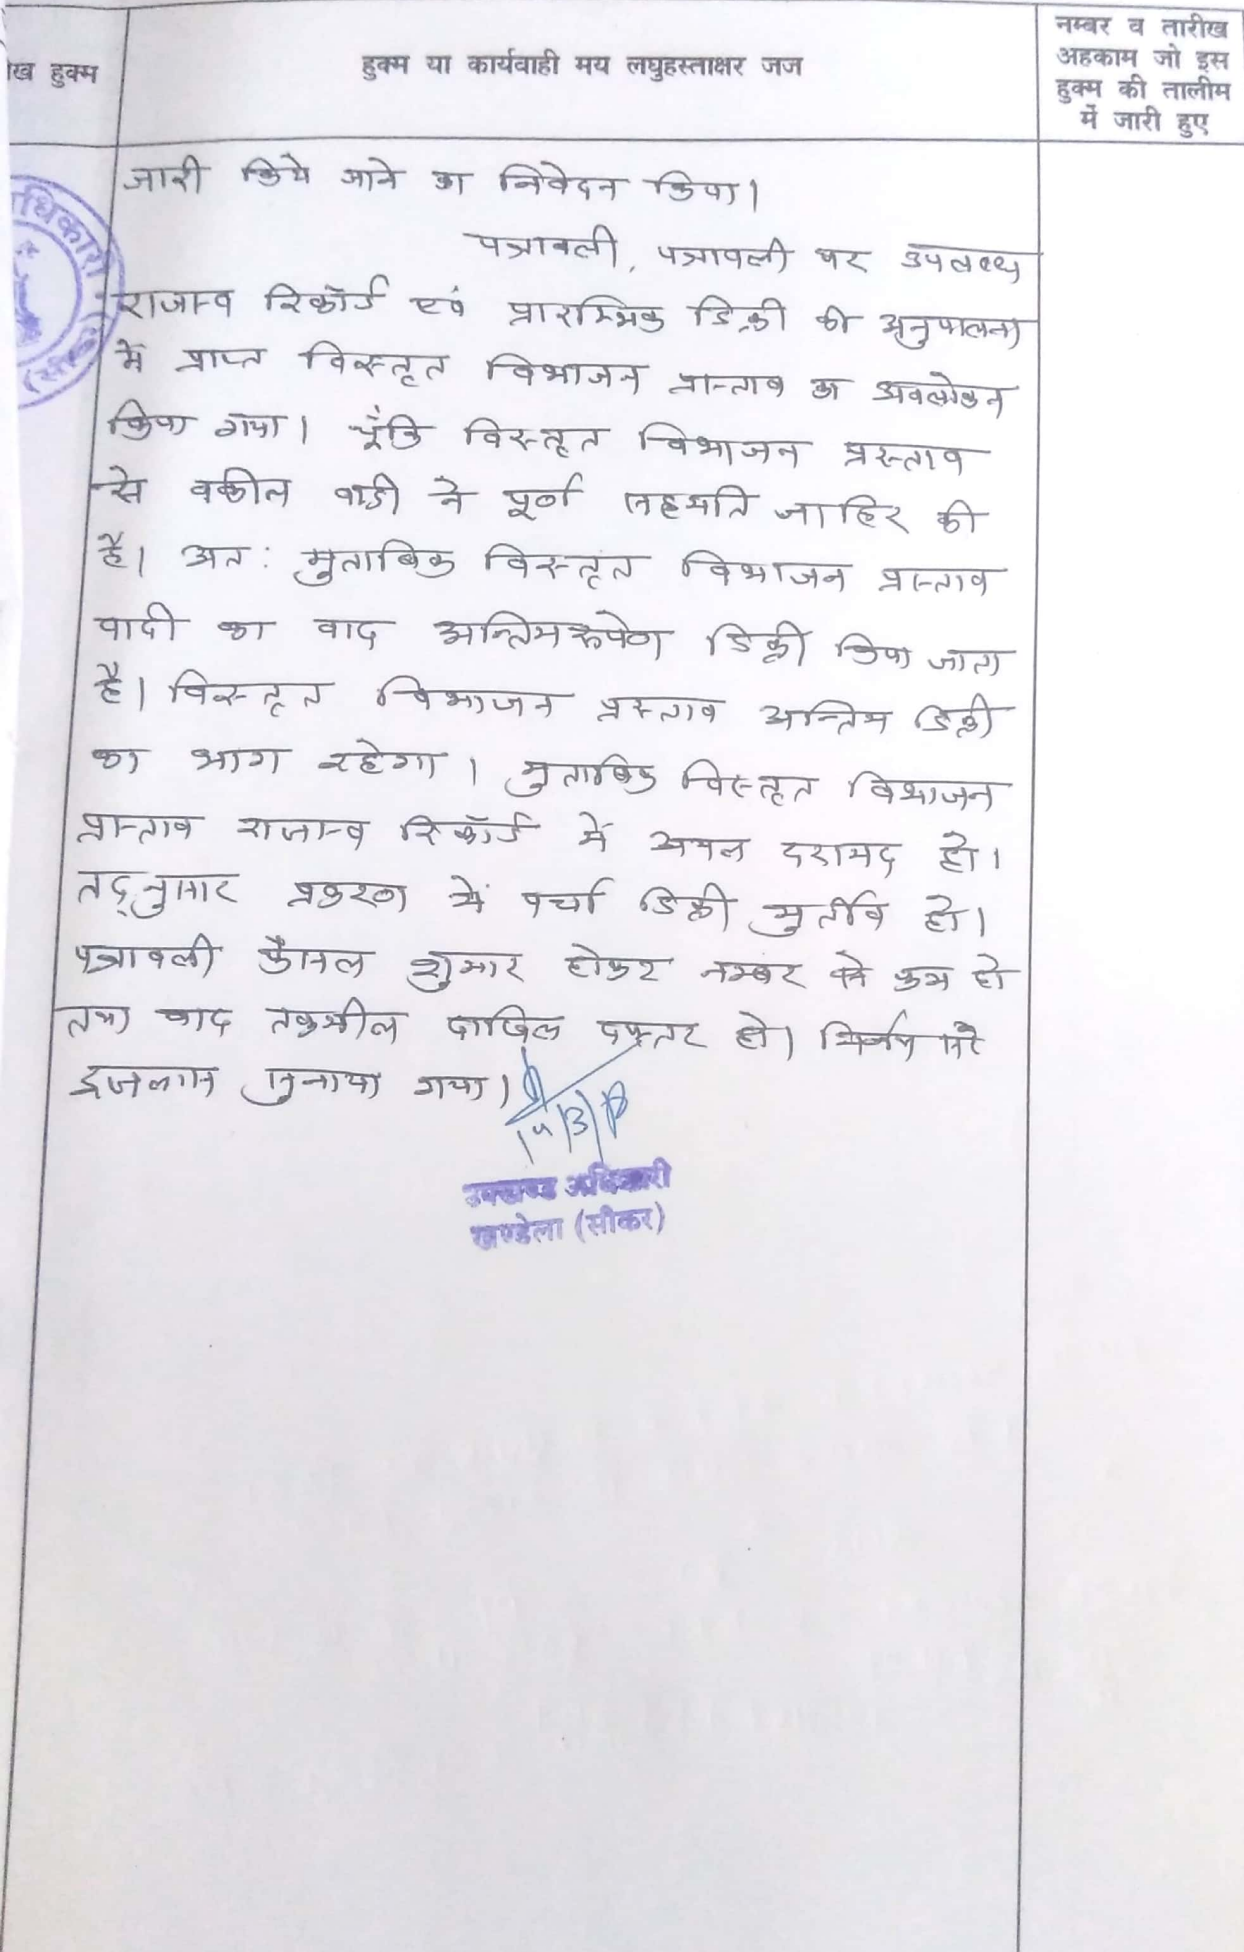 नम्बर व तारीख
अहकाम जो इस
हुक्म की तालीम
में जारी हुए
हुक्म या कार्यवाही मय लघुहस्ताक्षर जज
ख हुक्म
जारी किये जाने का निवेदन किया।
पत्रावली, पत्रावली पर उपलब्ध
राजस्व रिकॉर्ड एवं प्रारम्भिक डिक्री की अनुपालना
में प्राप्त विस्तृत विभाजन प्रस्ताव का अवलोकन
किया गया। चूंकि विस्तृत विभाजन प्रस्ताव
से वकील वादी ने पूर्ण सहमति जाहिर की
है। अतः मुताबिक विस्तृत विभाजन प्रस्ताव
वादी का वाद अन्तिमरूपेण डिक्री किया जाता
है। विस्तृत विभाजन प्रस्ताव अन्तिम डिक्री
का भाग रहेगा। मुताबिक विस्तृत विभाजन
प्रस्ताव राजस्व रिकॉर्ड में अमल दरामद हो।
तद्नुसार प्रकरण में पर्चा डिक्री मुर्तिब हो।
पत्रावली फैसल शुमार होकर नम्बर से कम हो
तथा बाद तकमील दाखिल दफ्तर हो। निर्णय सरे
इजलास सुनाया गया।
उपखण्ड अधिकारी
खण्डेला (सीकर)